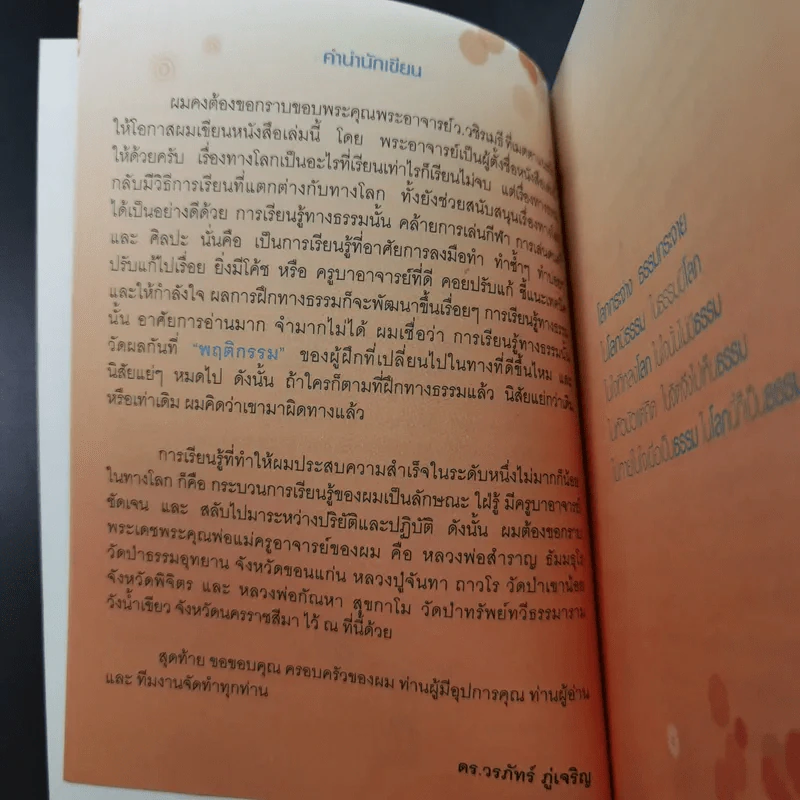 คำนำนักเขียน
ผมคงต้องขอกราบขอบพระคุณพระอาจารย์ว.วชิรเมธี ที่เมตตา
ให้โอกาสผมเขียนหนังสือเล่มนี้ โดย พระอาจารย์เป็นผู้ตั้งชื่อหนังสือ
ให้ด้วยครับ เรื่องทางโลกเป็นอะไรที่เรียนเท่าไรก็เรียนไม่จบ แต่เรื่องทาง
กลับมีวิธีการเรียนที่แตกต่างกับทางโลก ทั้งยังช่วยสนับสนุนเรื่องทาง
ได้เป็นอย่างดีด้วย การเรียนรู้ทางธรรมนั้น คล้ายการเล่นกีฬา การเล่น
และ ศิลปะ นั่นคือ เป็นการเรียนรู้ที่อาศัยการลงมือทำ ทำซ้ำๆ ทำ
ปรับแก้ไปเรื่อย ยิ่งมีโค้ช หรือ ครูบาอาจารย์ที่ดี คอยปรับแก้ ชี้แนะ
และให้กำลังใจ ผลการฝึกทางธรรมก็จะพัฒนาขึ้นเรื่อยๆ การเรียนรู้ทางธรรม
นั้น อาศัยการอ่านมาก จำมากไม่ได้ ผมเชื่อว่า การเรียนรู้ทางธรรมนั้น
วัดผลกันที่ "พฤติกรรม" ของผู้ฝึกที่เปลี่ยนไปในทางที่ดีขึ้นไหม และ
นิสัยแย่ๆ หมดไป ดังนั้น ถ้าใครก็ตามที่ฝึกทางธรรมแล้ว นิสัยแย่กว่าเดิม
หรือเท่าเดิม ผมคิดว่าเขามาผิดทางแล้ว
การเรียนรู้ที่ทำให้ผมประสบความสำเร็จในระดับหนึ่งไม่มากก็น้อย
ในทางโลก ก็คือ กระบวนการเรียนรู้ของผมเป็นลักษณะ ใฝ่รู้ มีครูบาอาจารย์
ชัดเจน และ สลับไปมาระหว่างปริยัติและปฏิบัติ ดังนั้น ผมต้องขอกราบ
พระเดชพระคุณพ่อแม่ครูอาจารย์ของผม คือ หลวงพ่อสำราญ ธัมมธุโร
วัดป่าธรรมอุทยาน จังหวัดขอนแก่น หลวงปู่จันทา ถาวโร วัดป่าเขาน้อย
จังหวัดพิจิตร และ หลวงพ่อกัณหา สุขกาโม วัดป่าทรัพย์ทวีธรรมาราม
วังน้ำเขียว จังหวัดนครราชสีมา ไว้ ณ ที่นี้ด้วย
สุดท้าย ขอขอบคุณ ครอบครัวของผม ท่านผู้มีอุปการคุณ ท่านผู้อ่าน
และ ทีมงานจัดทำทุกท่าน
ดร.วรภัทร์ ภู่เจริญ
โลกกระจ่าง ธรรมกระจาย
ในโลกมีธรรม ในธรรมมีโลก